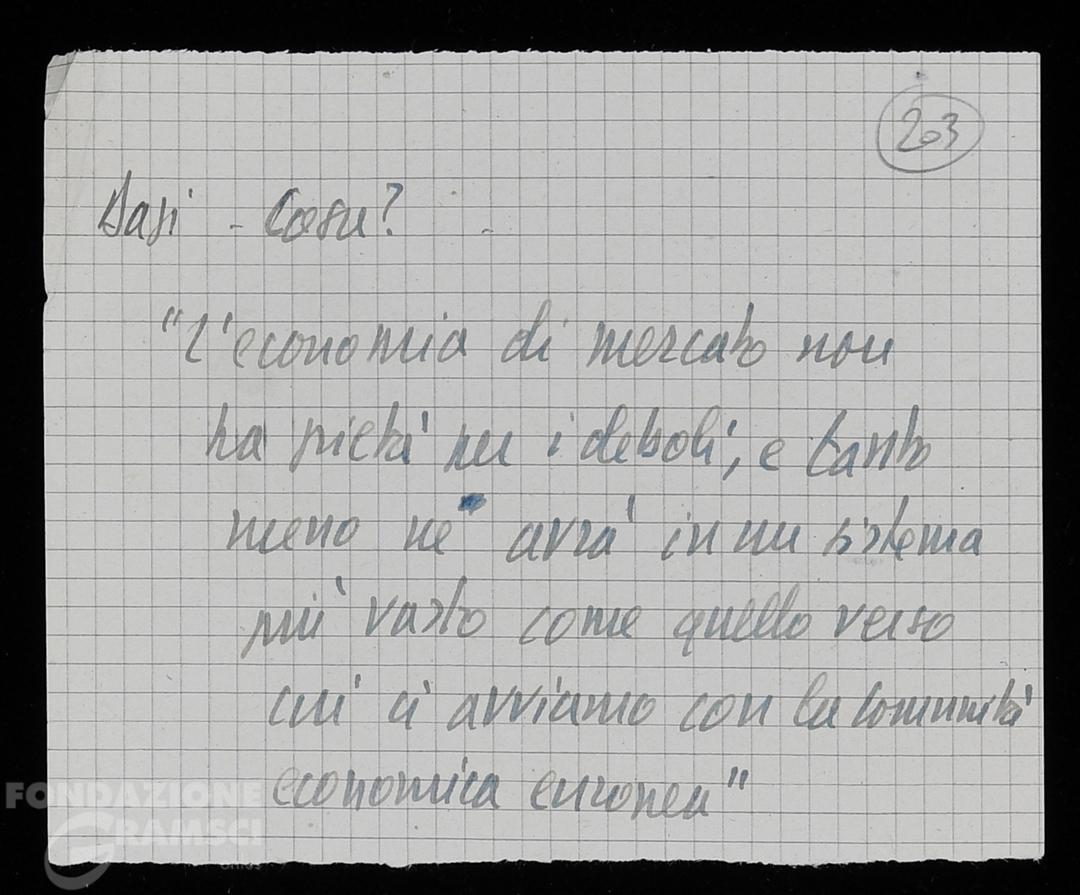 203
Dasi - Cosa?
"L'economia di mercato non
ha pietà per i deboli, e tanto
meno ne avrà in un sistema
più vasto come quello verso
cui ci avviamo con la Comunità
economica europea"
FONDAZIONE
GRAMSCI